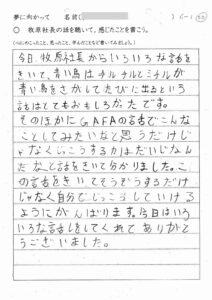 夢に向かって 名前( ) 5-1
○ 牧原社長の話を聴いて、感じたことを書こう。
今日、牧原社長からいろいろな話を
きいて、青い鳥はチルチルとミチルが
青い鳥をさがしてたびに出るという
話はとてもおもしろかったです。
そのほかにGAFAの話でこんな
ことしてみたいなと思うだけじ
ゃなくじっこうする力はだいじなん
だなこと話をきいて分かりました。こ
の話をきいてそうぞうするだけ
じゃなく自分でじっこうしていける
ようにがんばります。今日はいろ
いろな話をしてくれてありがと
うございました。